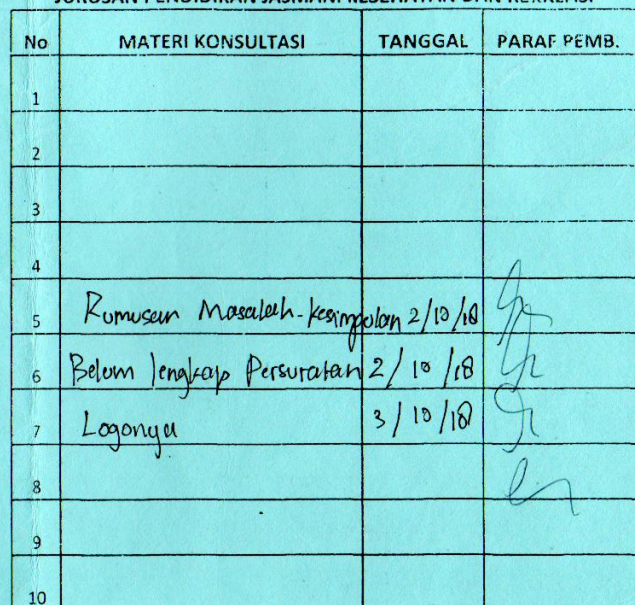 JURUSAN PENDIDIKAN JASMANI KESEHATAN DAN REKREASI
No MATERI KONSULTASI TANGGAL PARAF PEMB.
1
2
3
4
5 Rumusan Masalah-kesimpulan 2/10/18
6 Belum lengkap Persuratan 2/10/18
7 Logonya 3/10/18
8
9
10